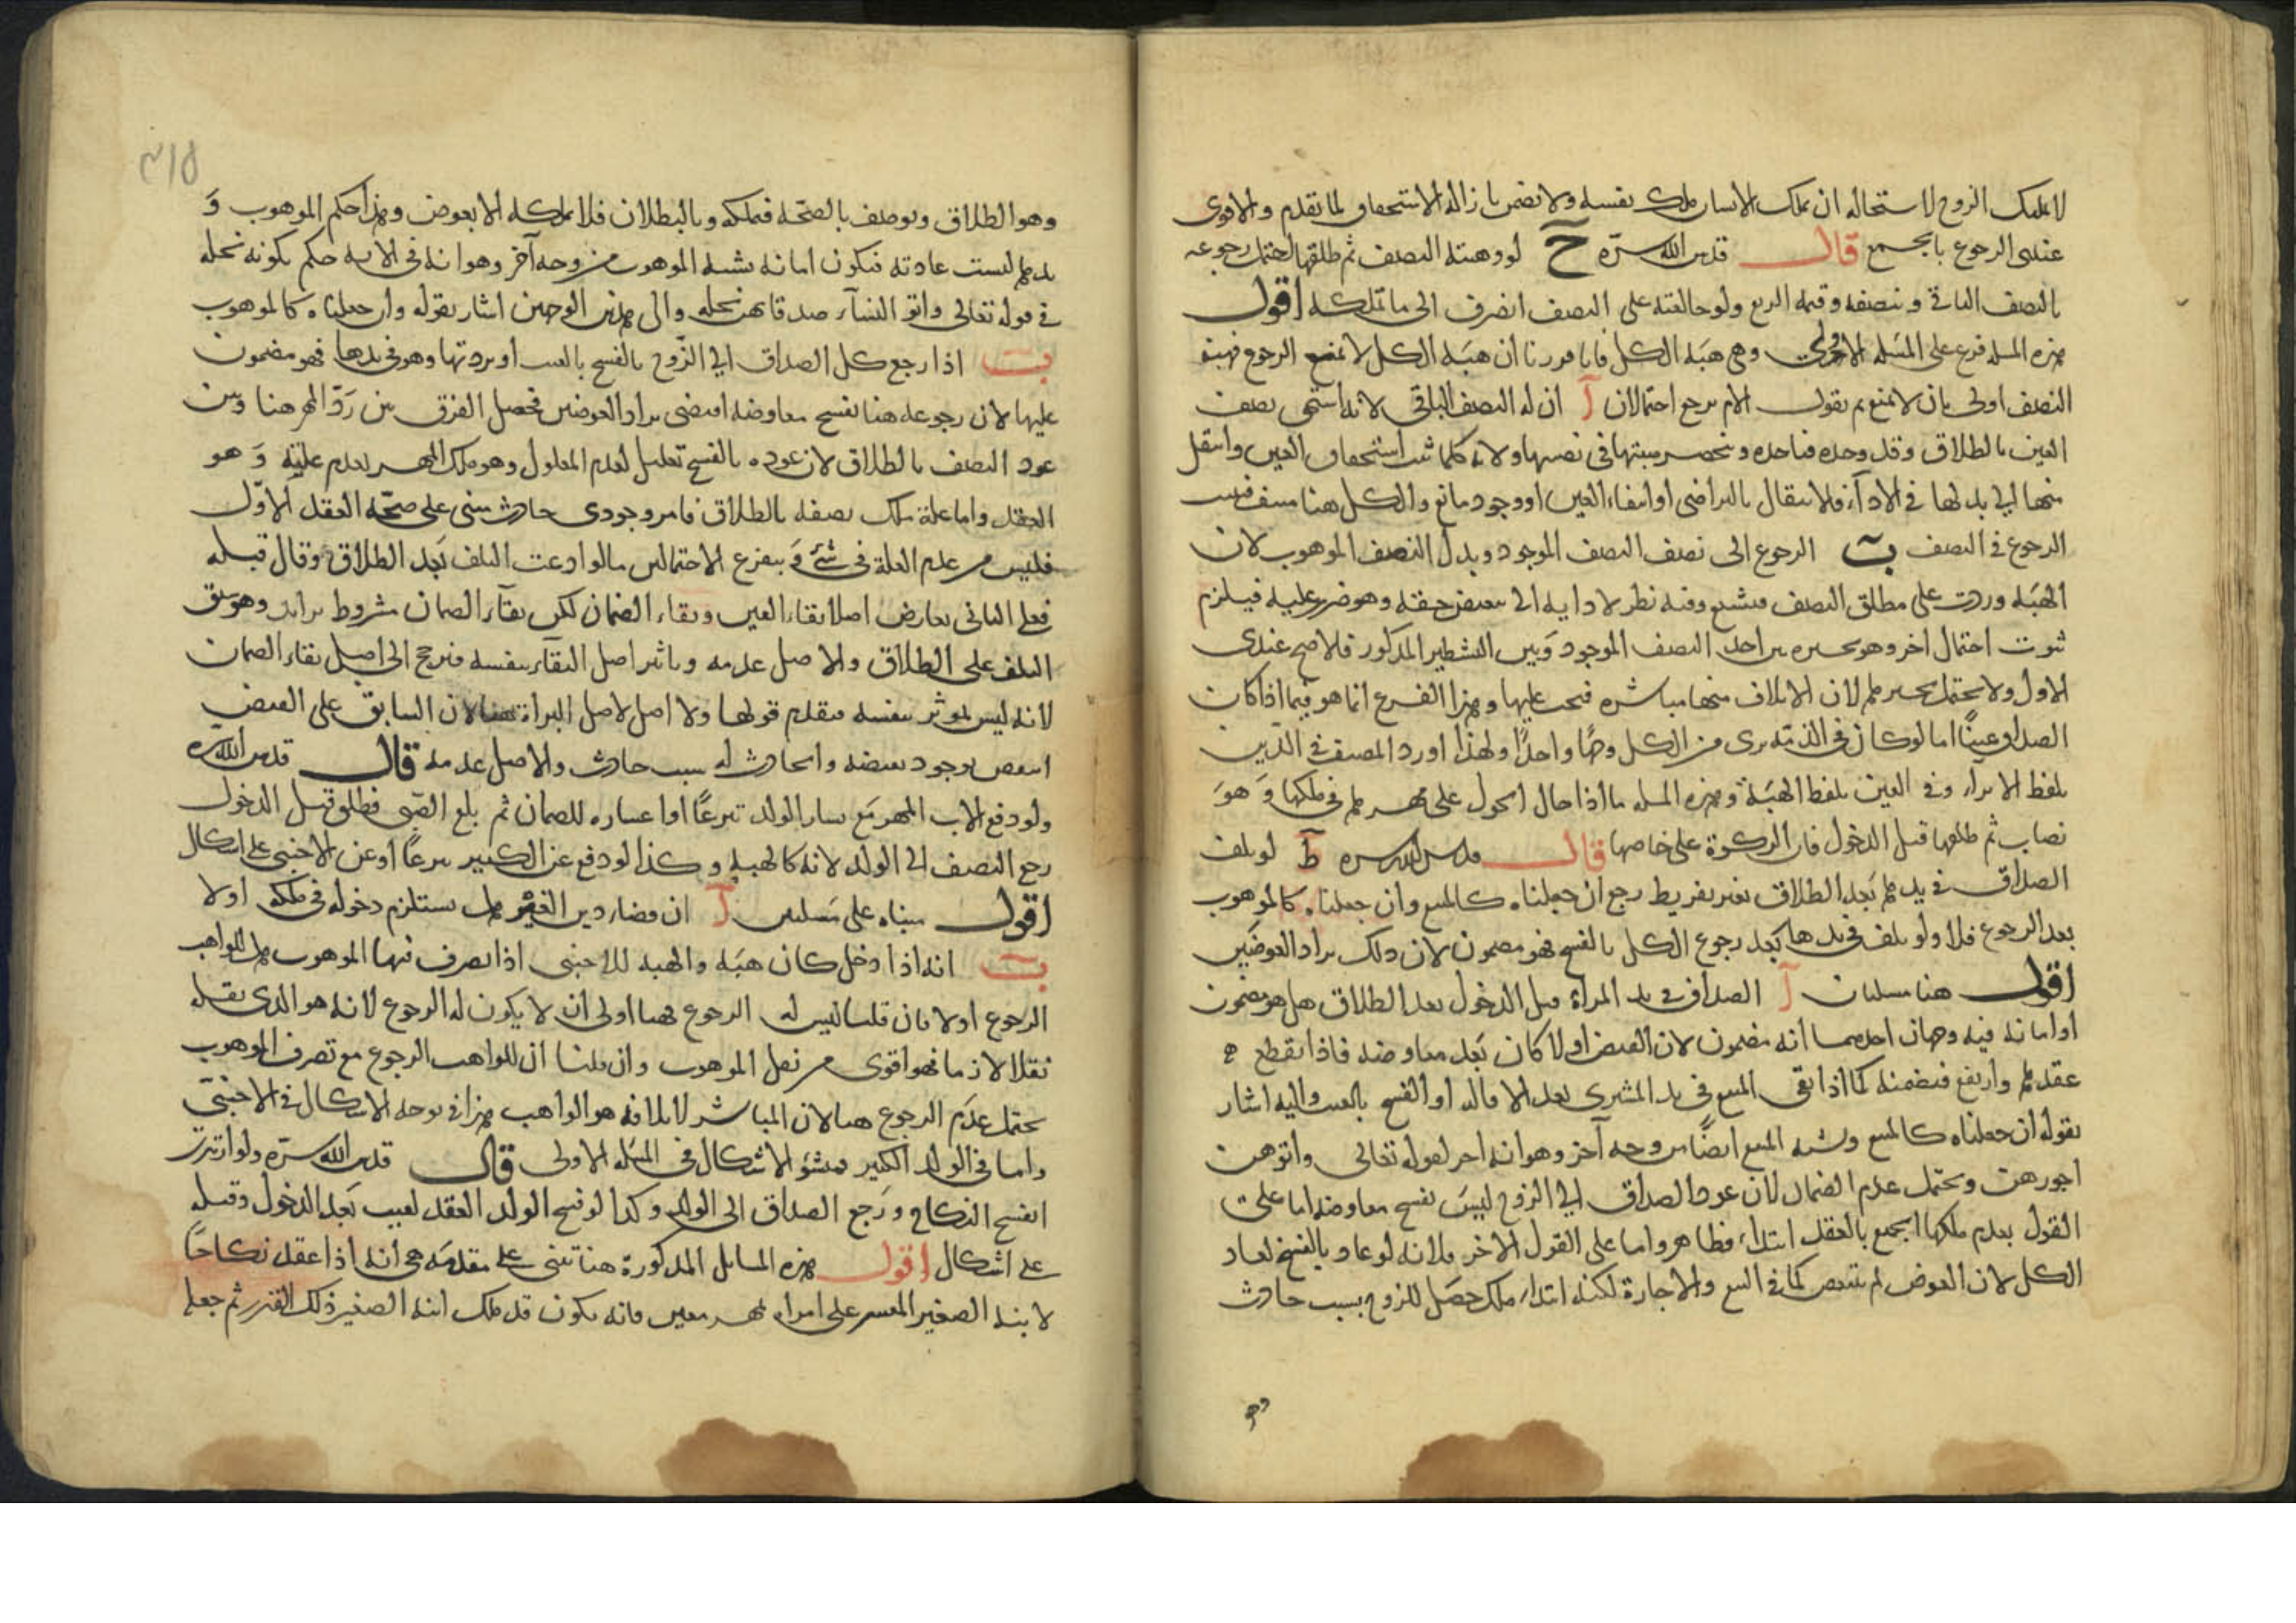 لا يملك الزوج لاستحالة ان يملك الانسان ملك نفسه ولا يضمن بازالة الاستحقاق لما تقدم والاقوى
عندى الرجوع بالجميع قال قدس الله سره ح لو وهبته النصف ثم طلقها احتمل رجوعه
بالنصف الباقى وبنصفه وقيمة الربع ولو خالعته على النصف انصرف الى ما تملكه اقول
هذه المسله فرع على المسله الاولى وهى هبة الكل فانا قررنا ان هبة الكل لا تمنع الرجوع فهبة
النصف اولى بان لا تمنع ثم نقول الام يرجع احتمالان آ ان له النصف الباقى لانه استحق نصف
العين بالطلاق وقد وجده فياخذه وينحصر هبتها فى نصيبها ولانه كلما ثبت استحقاق العين وانتقل
منها الى بدلها فى الاداء فلا ينتقال بالتراضى او انتفاء العين او وجود مانع والكل هنا منتف فيثبت
الرجوع فى النصف ب الرجوع الى نصف النصف الموجود وبدل النصف الموهوب لان
الهبة وردت على مطلق النصف فيشيع وفيه نظر لادايه الى تبعيض حقه وهو ضرر عليه فيلزم
ثبوت احتمال اخر وهو تخييره بين اخذ النصف الموجود وبين التشطير المذكور فلاصح عندى
الاول ولا يحتمل تخييرهم لان الاتلاف منها مباشرة فيجب عليها وهذا الفرع انما هو فيما اذا كان
الصداق عينًا اما لو كان فى الذمة برى من الكل وجهًا واحدًا ولهذا اورد المصنف فى الدين
بلفظ الابراء وفى العين بلفظ الهبة وهذه المسله ما اذا حال الحول على مهرهم فى ملكها وهو
نصاب ثم طلقها قبل الدخول فان الزكوة على خاصها قال قدس الله سره ط لو تلف
الصداق فى يدهم بعد الطلاق بغير تفريط رجع ان جعلناه كالمبيع وان جعلناه كالموهوب
بعد الرجوع فلا ولو تلف فى يدها بعد رجوع الكل بالفسخ فهو مضمون لان ذلك براد العوضين
اقول هنا مسلتان آ الصداق فى يد المراة قبل الدخول بعد الطلاق هل هو مضمون
او امانة فيه وجهان احدهما انه مضمون لان القبض اولا كان بعد معاوضة فاذا انقطع
عقدهم وارتفع فيضمنه كما اذا بقى المبيع فى يد المشترى بعد الاقالة او الفسخ بالعيب واليه اشار
بقوله ان جعلناه كالمبيع ويشبه المبيع ايضًا من وجه آخر وهو انه اجر لقوله تعالى وآتوهن
اجورهن ويحتمل عدم الضمان لان عود الصداق الى الزوج ليس بفسخ معاوضة اما على
القول بعدم ملكها الجميع بالعقد ابتداء فظاهر واما على القول الاخر فلانه لو عاد بالفسخ لعاد
الكل لان العوض لم ينتقص كما فى البيع والاجارة لكنه ابتداء ملك حصل للزوج بسبب حادث
وهو
٣١٥
وهو الطلاق ويوصف بالصحة فيملكه وبالبطلان فلا يملكه الا بعوض وهذا حكم الموهوب و
يدهم ليست عادية فيكون امانة يشبه الموهوب من وجه آخر وهو انه فى الاية حكم بكونه نحله
فى قوله تعالى وآتو النساء صدقاتهن نحله والى هذين الوجهين اشار بقوله وان جعلناه كالموهوب
ب اذا رجع كل الصداق الى الزوج بالفسخ بالعيب او بردتها وهو فى يدها فهو مضمون
عليها لان رجوعه هنا بفسخ معاوضة اقتضى براد العوضين فحصل الفرق بين رد المهر هنا وبين
عود النصف بالطلاق لان عوده بالفسخ تعليل لعدم المعلول وهو ملك المهر لعدم علته وهو
العقد واما علة ملك نصفه بالطلاق فامر وجودى حادث مبنى على صحة العقد الاول
فليس من عدم العلة فى شئ و يتفرع الاحتمالين ما لو ادعت التلف بعد الطلاق وقال قبله
فعلى الثانى تعارض اصلا بقاء العين وبقاء الضمان لكن بقاء الضمان مشروط بزايد وهو سبق
التلف على الطلاق والاصل عدمه وتاثير اصل البقاء بنفسه فيرجح الى اصل بقاء الضمان
لانه ليس لموثر بنفسه فيقدم قولها ولا اصل لاصل البراة هنا لان السابق على القبض
انتقض بوجود بعضه والحادث له سبب حادث والاصل عدمه قال قدس الله سره
ولو دفع الاب المهر مع يسار الولد تبرعًا او اعساره للضمان ثم بلغ الصبى فطلق قبل الدخول
رجع النصف الى الولد لانه كالهبة وكذا لو دفع عن الكبير تبرعًا او عن الاجنبى على اشكال
اقول مبناه على مسلتين آ ان قضاء دين الغير هل يستلزم دخوله فى ملكه اولا
ب انه اذا دخل كان هبة والهبة للاجنبى اذا تصرف فيها الموهوب هل للواهب
الرجوع اولا فان قلنا ليس له الرجوع فهنا اولى ان لا يكون له الرجوع لانه هو الذى نقله
نقلا لازما فهو اقوى من نقل الموهوب وان قلنا ان للواهب الرجوع مع تصرف الموهوب
يحتمل عدم الرجوع هنا لان المباشر لاتلافه هو الواهب هذا فى توجه الاشكال فى الاجنبى
واما فى الولد الكبير فمنشؤ الاشكال فى المسله الاولى قال قدس الله سره ولو ارتدت
انفسخ النكاح ورجع الصداق الى الولد وكذا لو فسخ الولد العقد لعيب بعد الدخول وقبله
على اشكال اقول هذه المسائل المذكورة هنا تبنى على مقدمة هى انه اذا عقد نكاحًا
لابنه الصغير المعسر على امراة بمهر معين فانه يكون قد ملك ابنه الصغير ذلك القدر ثم جعله